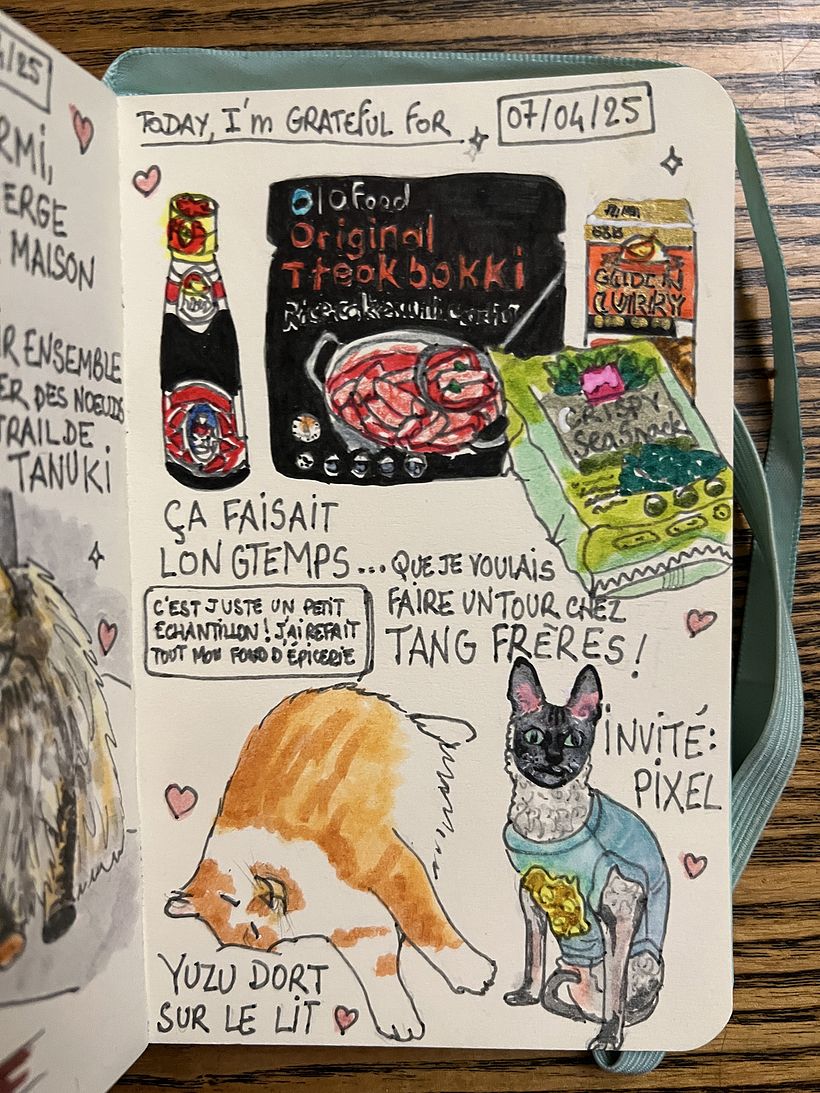 4/25
RMI,
ERGE
MAISON
R ENSEMBLE
ER DES NOEUDS
TRAIL DE
TANUKI
TODAY, I'm GRATEFUL FOR 07/04/25
O Food
Original
Tteokbokki
GOLDEN
CURRY
CRISPY
Seasnack
ÇA FAISAIT
LONGTEMPS... QUE JE VOULAIS
FAIRE UN TOUR CHEZ
TANG FRÈRES!
C'EST JUSTE UN PETIT
ÉCHANTILLON! J'AI REFAIT
TOUT MON FOND D'ÉPICERIE
INVITÉ:
PIXEL
YUZU DORT
SUR LE LIT